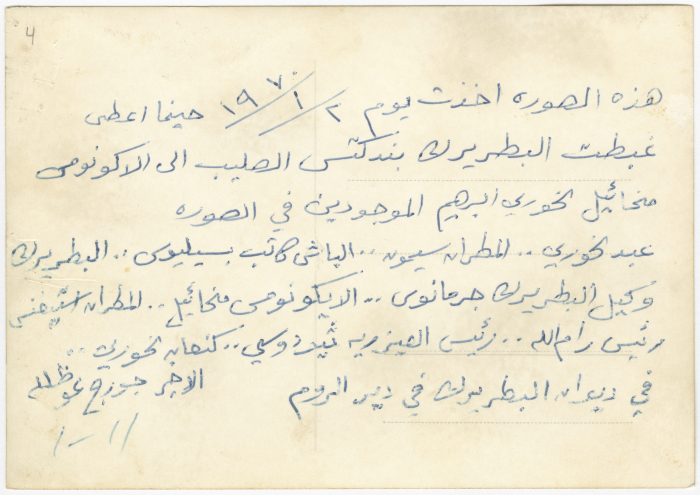 4
هذه الصوره اخذت يوم ٢/١/١٩٧٠ حينما اعطى
غبطت البطريرك بندكتس الصليب الى الاكونومس
منخائيل الخوري ابرهيم الموجودين في الصوره
عبد الخوري .. المطران سيمون .. الباش كاتب بسيليوس .. البطريرك
وكيل البطريرك جرمانوس .. الايكونومس منخائيل .. المطران
رئيس رام الله .. رئيس العيزريه .. كنعان الخوري ..
في ديوان البطريرك في دير الروم الاجر جورج